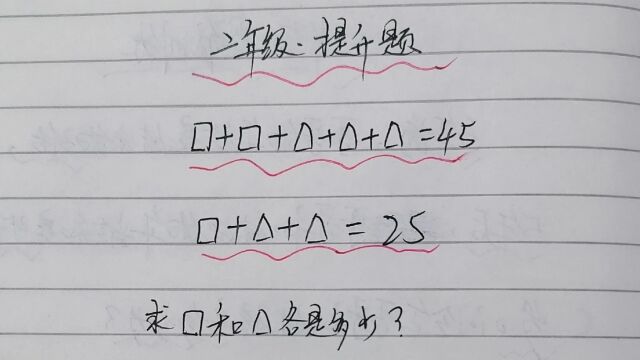 二年级:提升题
□+□+△+△+△=45
□+△+△=25
求□和△各是多少?